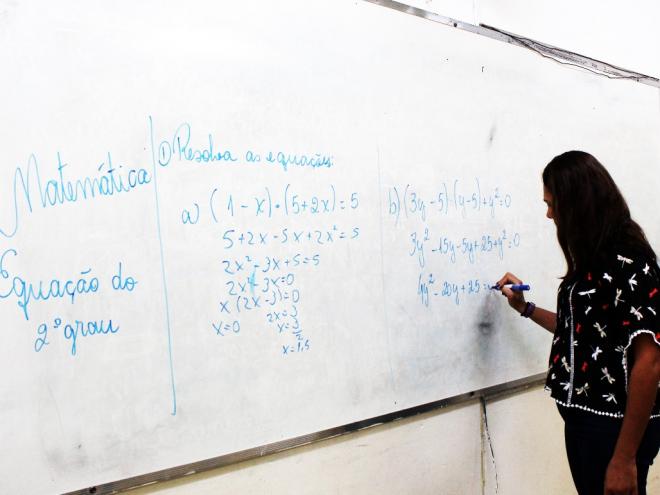 Matemática
Equação do
2º grau
① Resolva as equações:
a) (1 - x)·(5+2x) = 5
5+2x-5x+2x² = 5
2x² - 3x + 5 = 5
2x² - 3x = 0
x (2x - 3) = 0
x=0
2x = 3
x = 3/2
x = 1,5
b) (3y - 5)·(y - 5) + y² = 0
3y² - 15y - 5y + 25 + y² = 0
4y² - 20y + 25 =